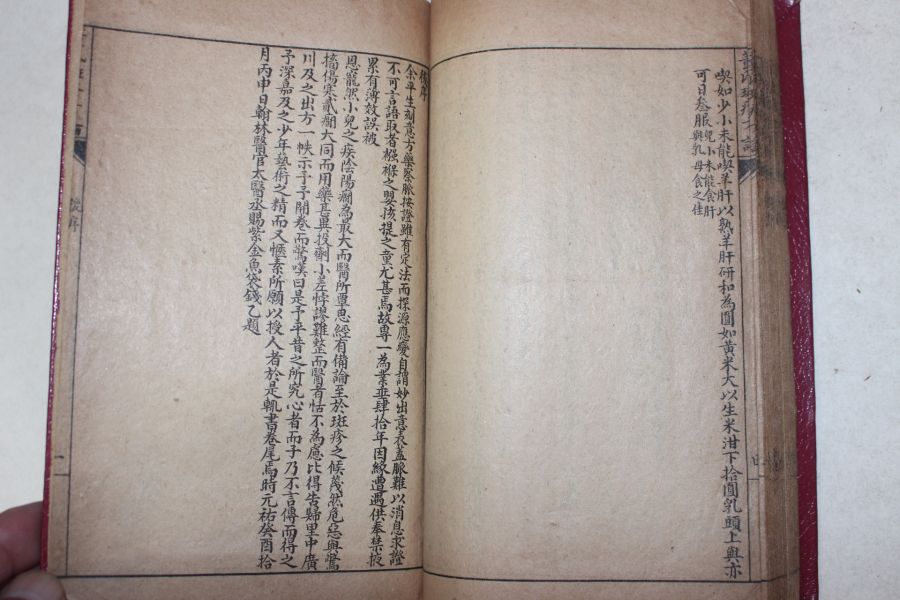 喫如少小未能喫羊肝以熟羊肝研和為圓如黃米大以生米泔下拾圓乳頭上與亦
可日叁服兒小未能食肝與乳母食之佳
後序
余平生刻意方藥察脈按證雖有定法而探源應變自謂妙出意表蓋脈難以消息求證
不可言語取者襁褓之嬰孩提之童尤甚焉故專一為業垂肆拾年因緣遭遇供奉禁掖
累有薄效誤被
恩寵然小兒之疾陰陽癇為最大而醫所覃思經有備論至於斑疹之候蔑然危惡與驚
搐傷寒貳癇大同而用藥甚異投劑小差悖謬難整而醫者恬不為慮比得告歸里中廣
川及之出方一帙示予予開卷而驚嘆曰是予平昔之所究心者而子乃不言傳而得之
予深嘉及之少年藝術之精而又愜素所願以授人者於是輒書卷尾焉時元祐癸酉拾
月丙申日翰林醫官太醫丞賜紫金魚袋錢乙題
後序
一
四